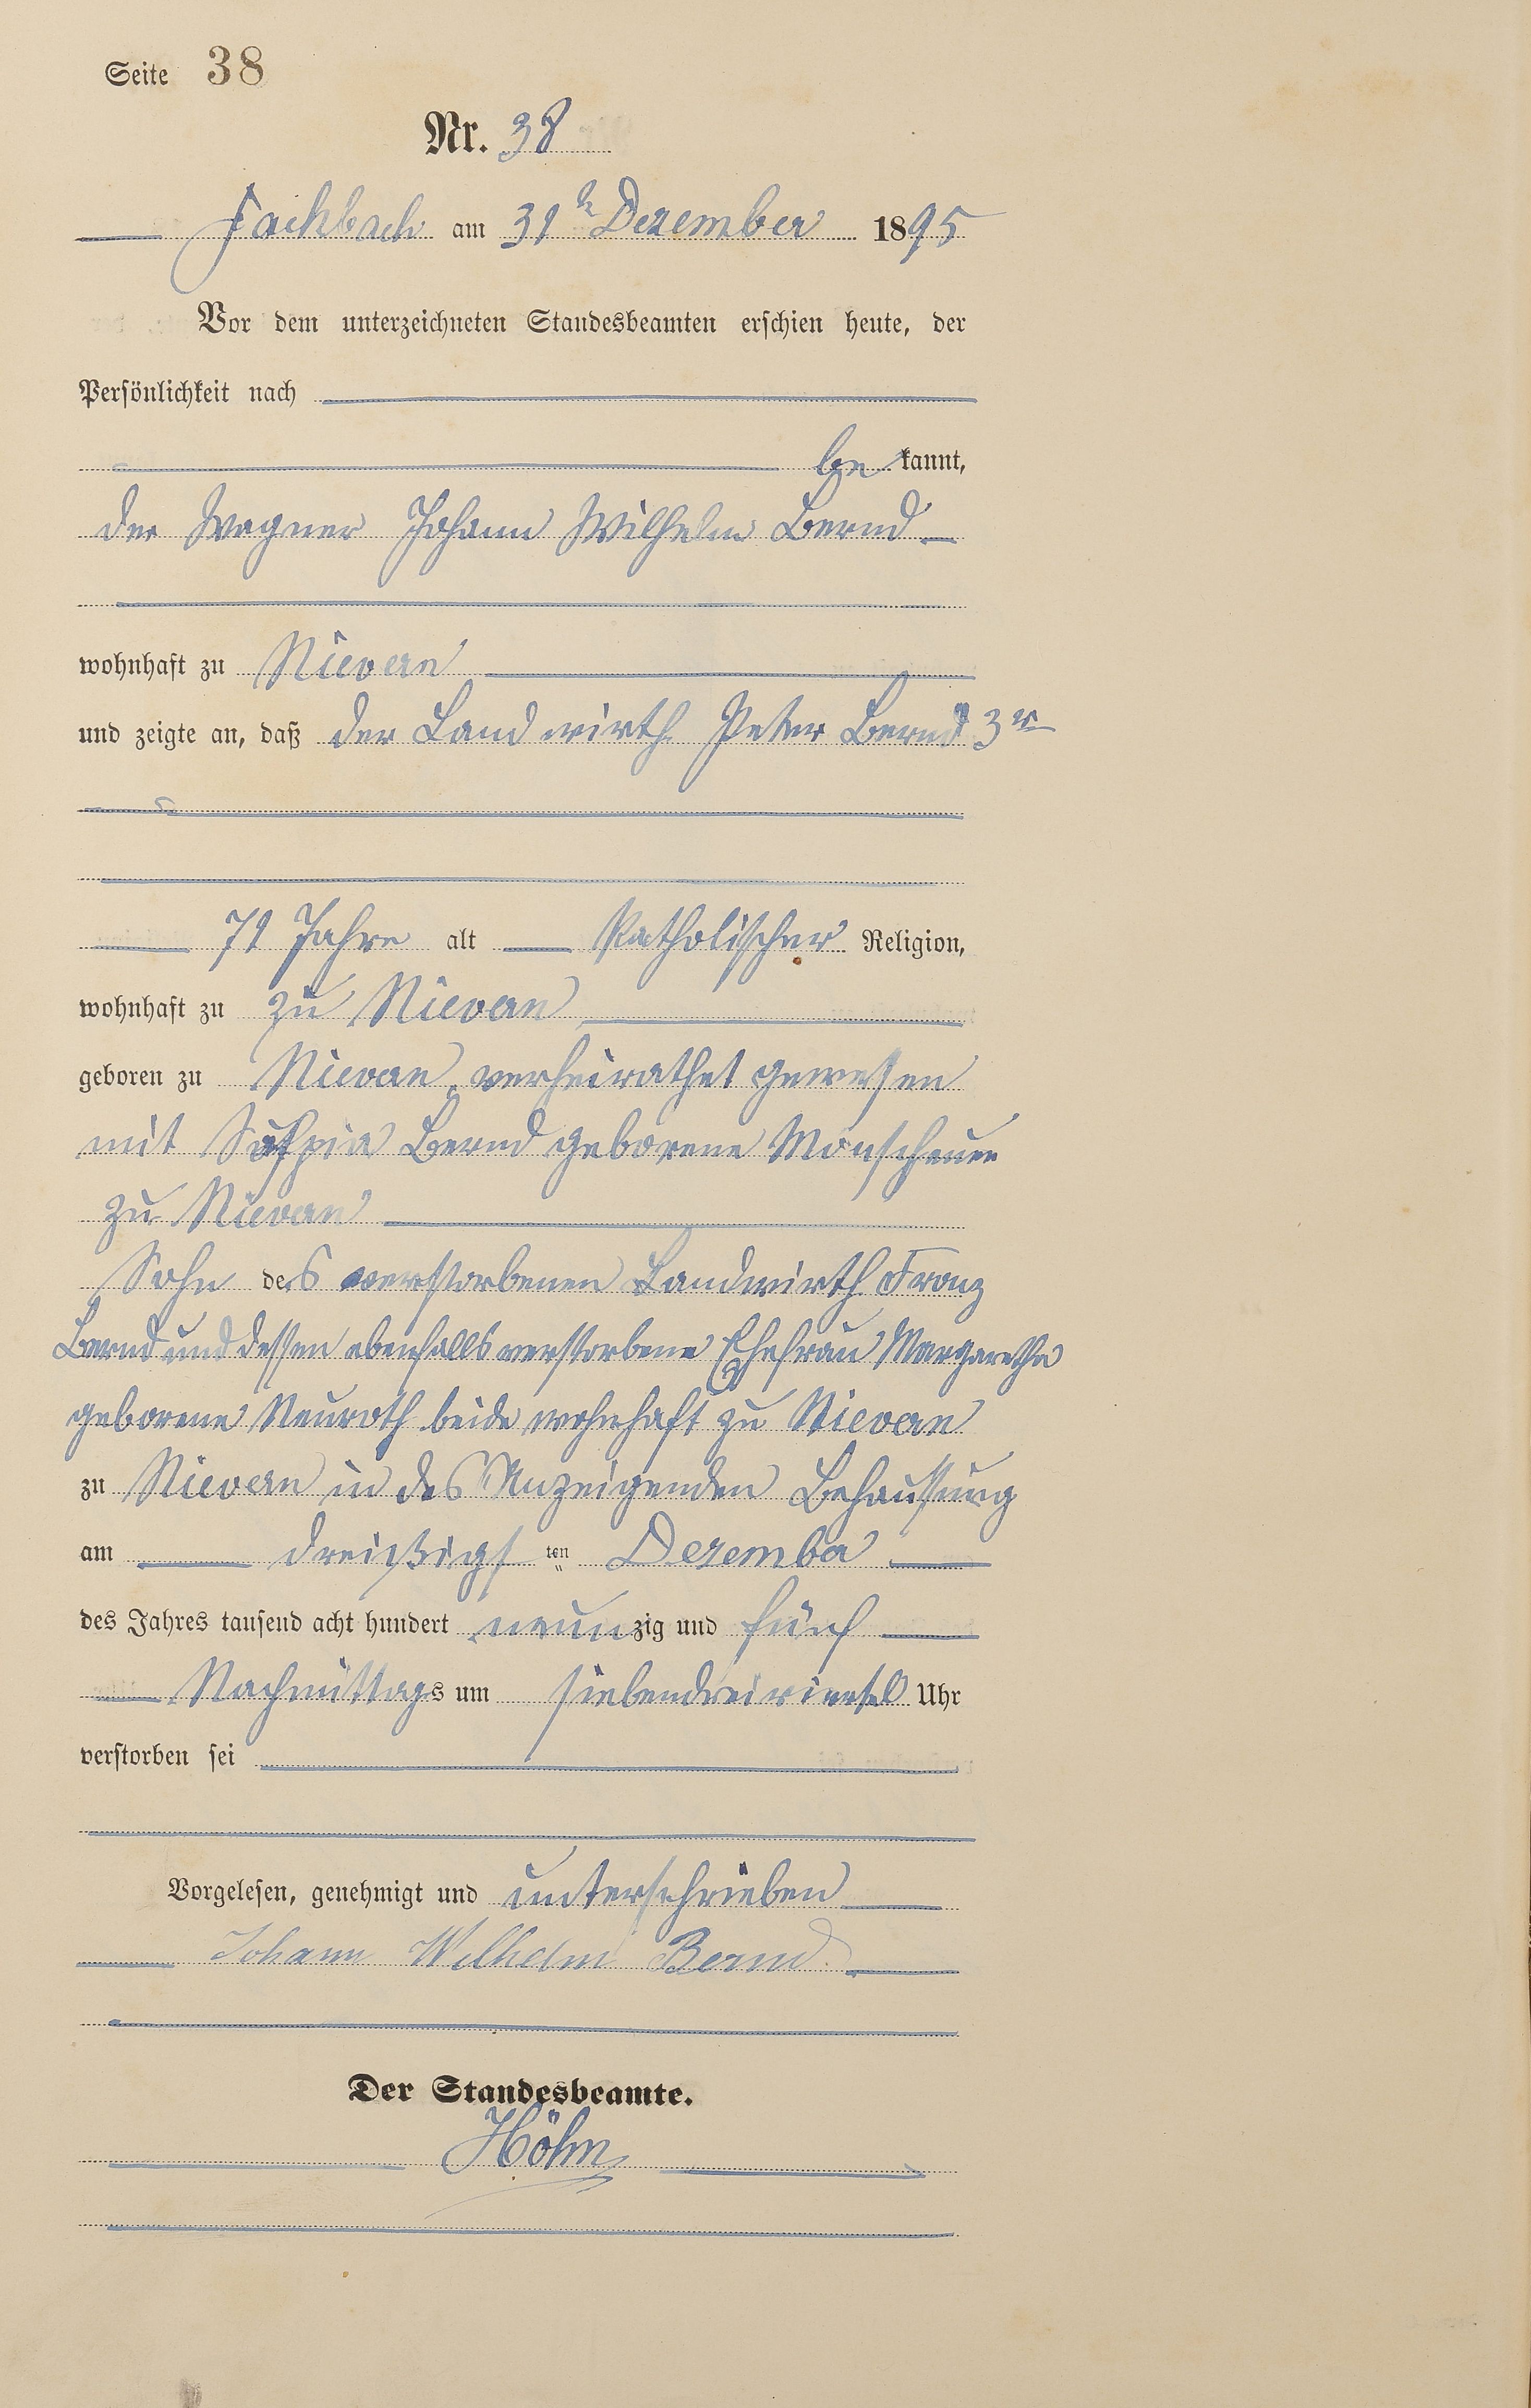 Seite 38
Nr. 38
Fachbach am 31ten Dezember 1895
Vor dem unterzeichneten Standesbeamten erschien heute, der
Persönlichkeit nach
be kannt,
der Wagner Johann Wilhelm Bernd
wohnhaft zu Nievern
und zeigte an, daß der Landwirth Peter Bernd 3r
71 Jahre alt Katholischer Religion,
wohnhaft zu zu Nievern
geboren zu Nievern, verheirathet gewesen
mit Bernd geborene Monschauer
zu Nievern
Sohn des verstorbenen Landwirth Franz
Bernd und dessen ebenfalls verstorbene Ehefrau Margaretha
geborene Neuroth beide wohnhaft zu Nievern
zu Nievern in des Anzeigenden Behaussung
am dreißigsten Dezember
des Jahres tausend acht hundert neunzig und fünf
Nachmittags um siebendreiviertel Uhr
verstorben sei
Vorgelesen, genehmigt und unterschrieben
Johann Wilhelm Bernd.
Der Standesbeamte.
Höhn